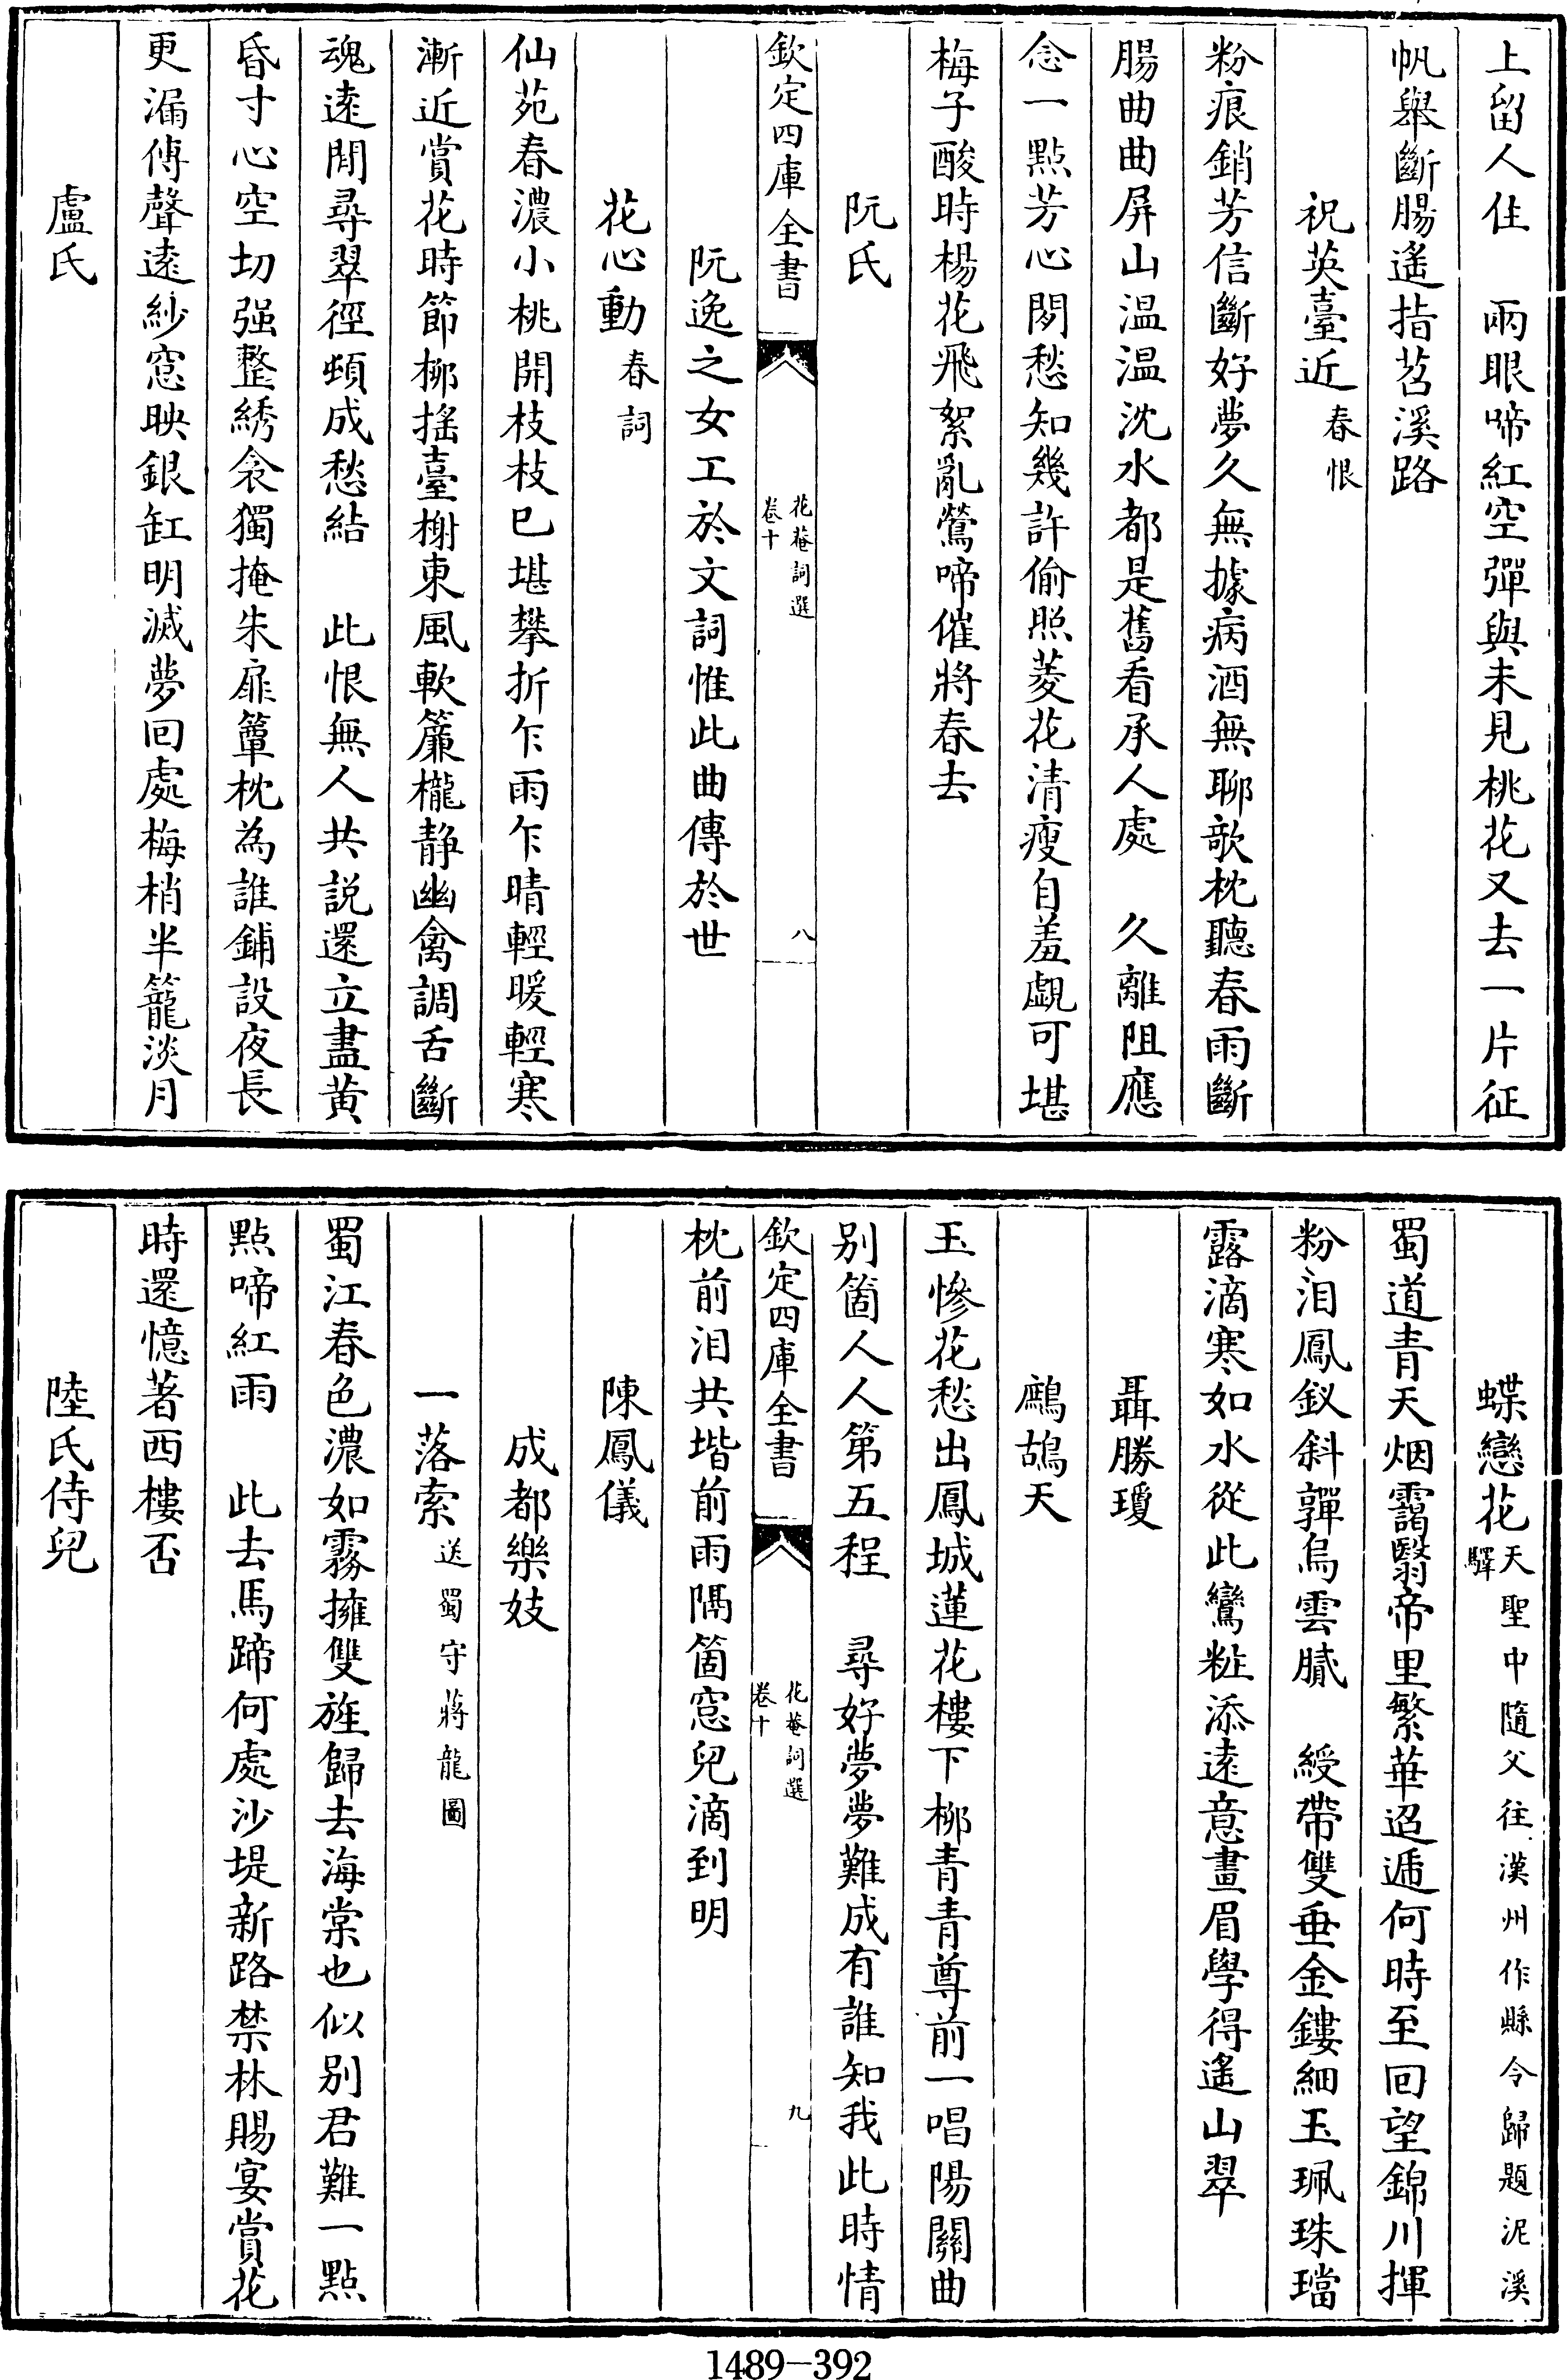 上留人住　兩眼啼紅空彈與未見桃花又去一片征
帆舉斷腸遙指苕溪路
祝英臺近春恨
粉痕銷芳信斷好夢久無據病酒無聊欹枕聽春雨斷
腸曲曲屏山温温沈水都是舊看承人處　久離阻應
念一點芳心閒愁知幾許偷照菱花清瘦自羞覷可堪
梅子酸時楊花飛絮亂鶯啼催將春去
阮氏
欽定四庫全書
花菴詞選
卷十
八
阮逸之女工於文詞惟此曲傳於世
花心動春詞
仙苑春濃小桃開枝枝已堪攀折乍雨乍晴輕暖輕寒
漸近賞花時節柳搖臺榭東風軟簾櫳静幽禽調舌斷
魂遠閒尋翠徑頓成愁結　此恨無人共説還立盡黄
昏寸心空切强整綉衾獨掩朱扉簟枕為誰鋪設夜長
更漏傳聲遠紗窓映銀缸明滅夢回處梅梢半籠淡月
盧氏
蝶戀花天聖中隨父往漢州作縣令歸題泥溪驛
蜀道青天烟靄翳帝里繁華迢遞何時至回望錦川揮
粉泪鳳釵斜嚲烏雲膩　綬帶雙垂金鏤細玉珮珠璫
露滴寒如水從此鸞粧添遠意畫眉學得遙山翠
聶勝瓊
鷓鴣天
玉慘花愁出鳳城蓮花樓下柳青青尊前一唱陽關曲
别箇人人第五程　尋好夢夢難成有誰知我此時情
欽定四庫全書
花菴詞選
卷十
九
枕前泪共堦前雨隔箇窓兒滴到明
陳鳳儀
成都樂妓
一落索送蜀守蔣龍圖
蜀江春色濃如霧擁雙旌歸去海棠也似别君難一點
點啼紅雨　此去馬蹄何處沙堤新路禁林賜宴賞花
時還憶著西樓否
陸氏侍兒
1489-392